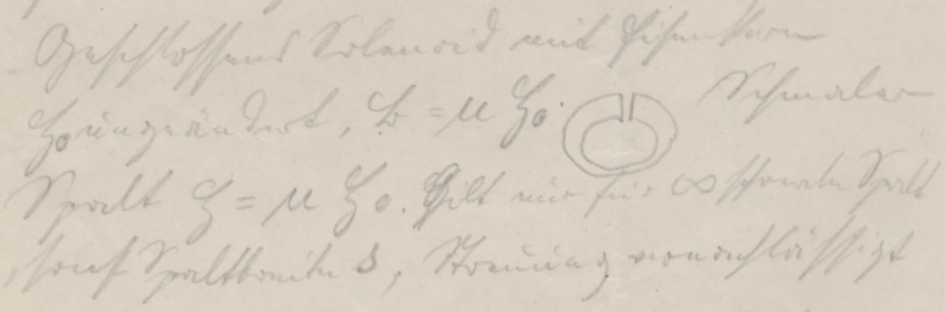 Geschlossenes Solenoid mit Eisenkern
H₀ ungeändert, B = μ H₀. Schmaler
Spalt H = μ H₀. Gilt nur für ∞ schmalen Spalt
, sonst Spaltbreite δ, Streuung vernachlässigt